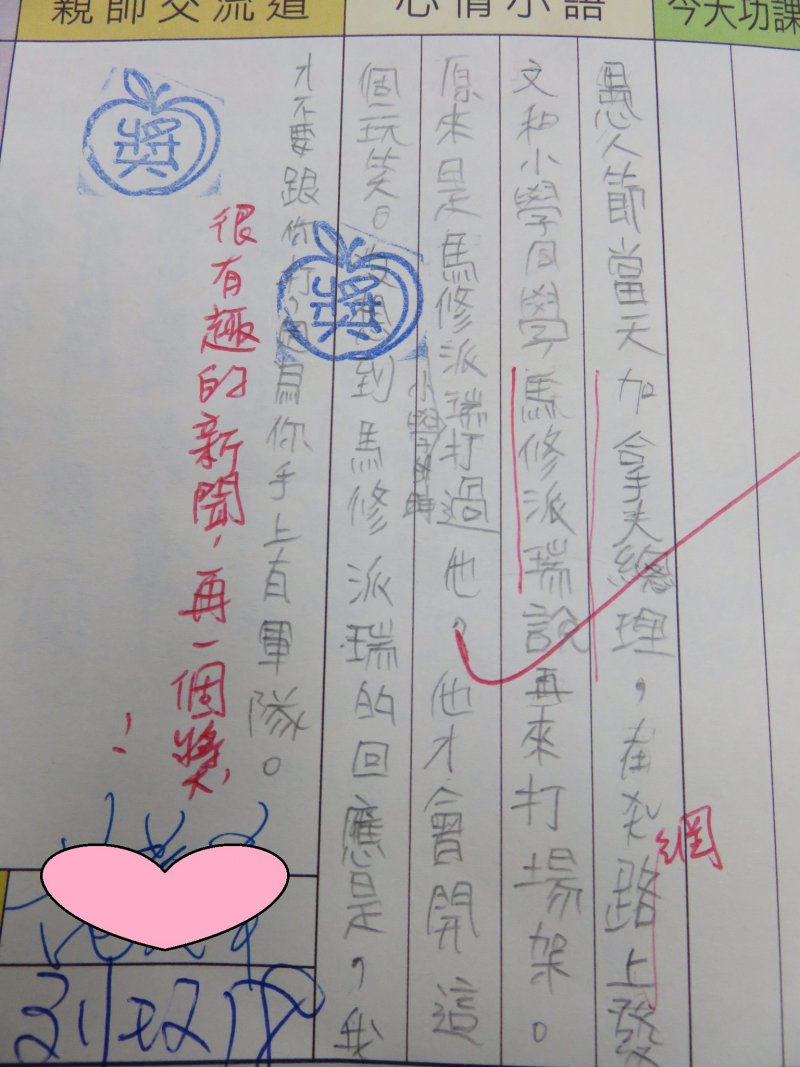 今天功課
心情小語
親師交流道
愚人節當天加拿大總理，在路上發
網
文和小學同學馬修派瑞說再來打場架。
原來是馬修派瑞打過他，他才會開這
小學時
個玩笑。沒想到馬修派瑞的回應是，我
才不要跟你打，因為你手上有軍隊。
獎
很有趣的新聞，再一個獎！
獎